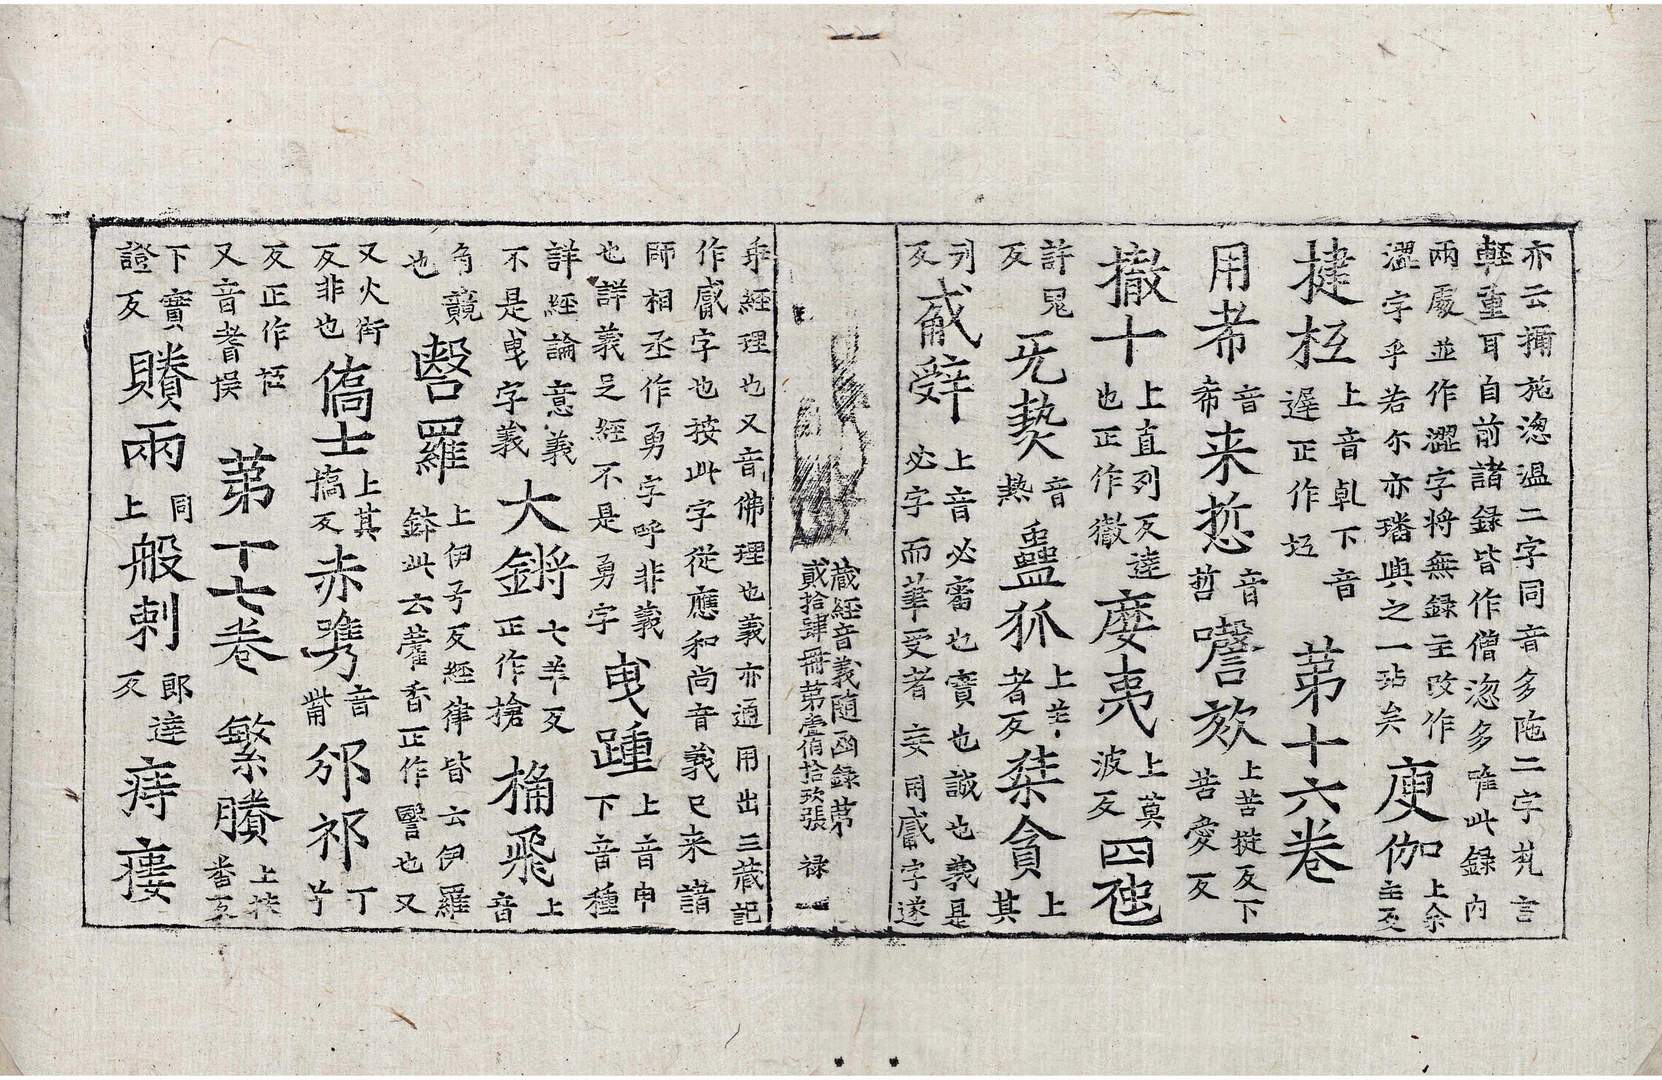 亦云攟施㧾温二字同音多陁二字礼言
輕重耳自前諸録皆作僧㧾多唯此録内
兩處並作澀字将無録主改作
澀字乎若尒亦璠與之一玷矣
庾伽上余主反
揵枑上音乹下音遅正作
第十六卷
用㣊音希来悊音哲噆欬上苦挞反下苦愛反
撤十上直列反逹也正作徹麼夷上莫波反四
許㒵反
旡㷍音熱蠱狐上者反桀貪上其
列反
辤上音必審也寶也誠也義是必字而筆受者妄用字遂
藏經音義随函録苐
貳拾肆冊第壹伯拾玖張 禄一
乖經理也又音佛理也義亦通用出三藏記
作字也按此字從應和尚音義已来諸
師相丞作勇字呼非義
也詳義足經不是勇字
曳踵上音申下音種
詳經論意義
不是曳字義
大鏘七羊反正作搶桷飛上音
角
也
竟
罄羅上伊兮反經律皆云伊羅鉢此云藿香正作瑿也又
又火街反非也
僑士上其搞反赤㩦音觜邠祁丁兮
反正作
又音耆悮
第十七卷
繁䞈上扶番反
下實證反
賸兩同上般剌郎達反痔瘻